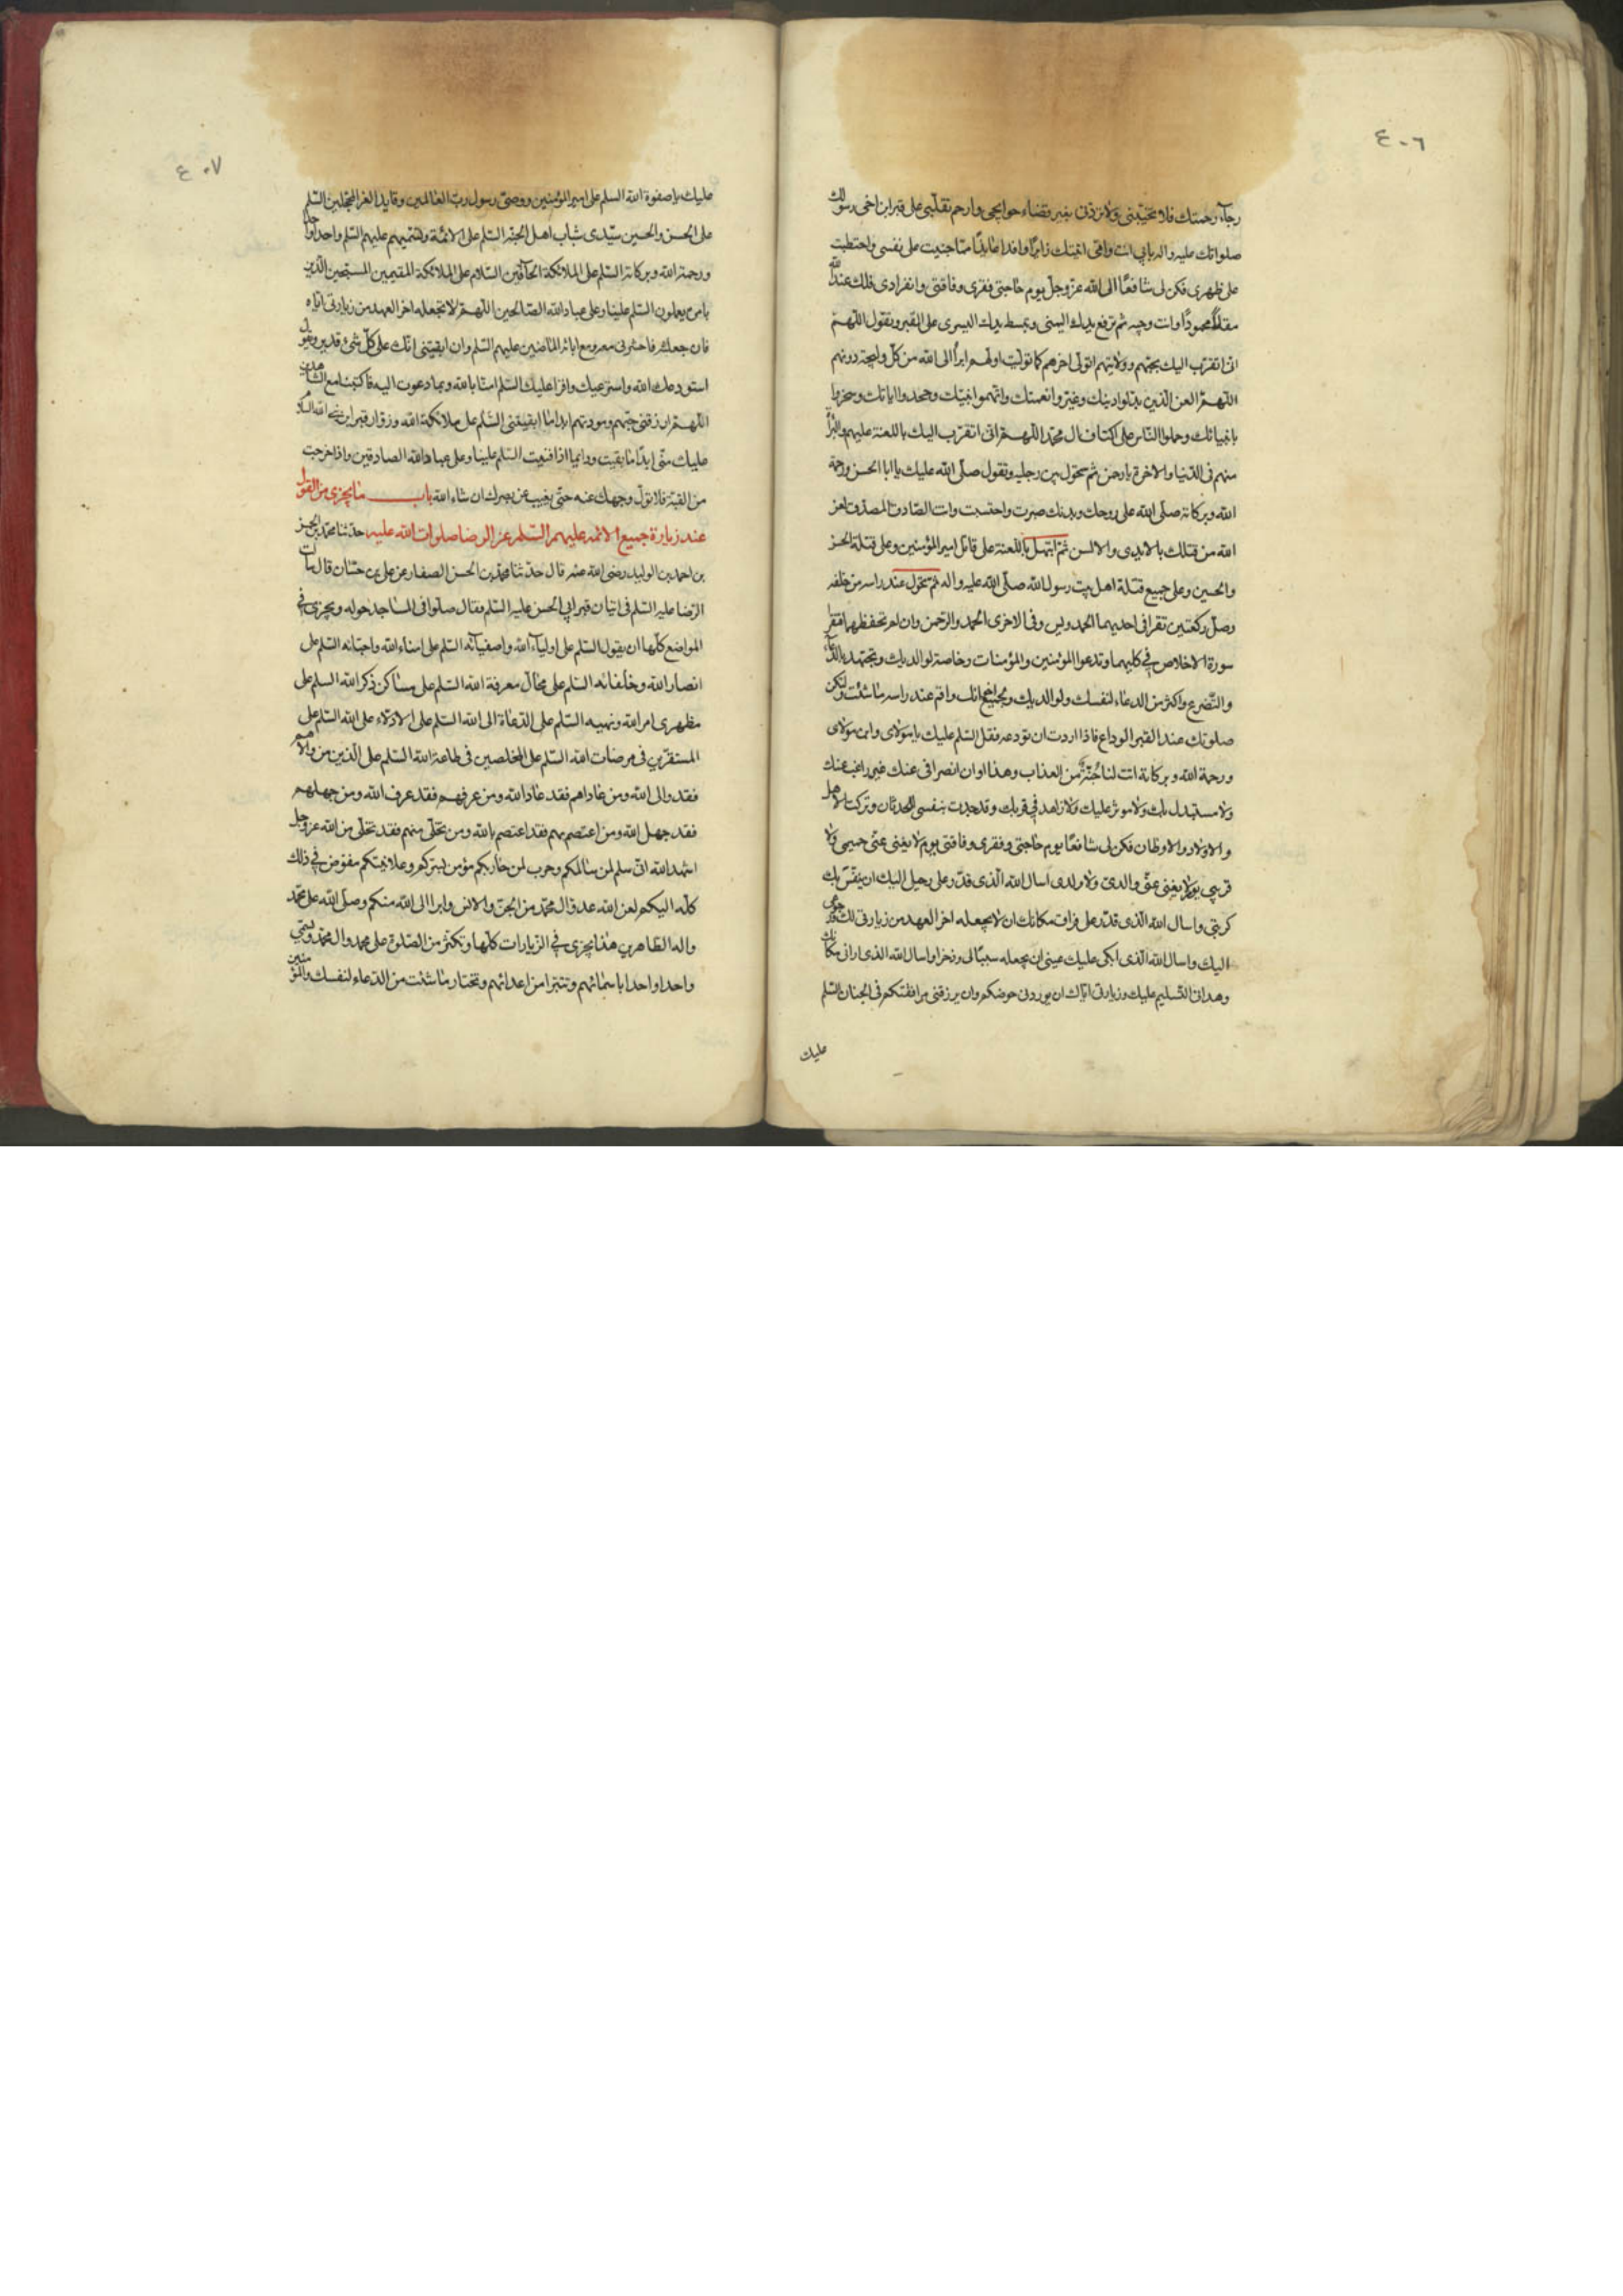 ٤٠٦
رجاء رحمتك فلا تخيبنى ولا تردنى بغير قضاء حوايجى وارحم تقلبى على قبر ابن اخى رسولك
صلواتك عليه واله بابى انت وامى اتيتك زايرا وافدا عايذا مما جنيت على نفسى واحتطبت
على ظهرى فكن لى شافعا الى الله عز وجل يوم حاجتى وفقرى وفاقتى وانفرادى فلك عند الله
مقاما محمودا وانت وجيه ثم ترفع يدك اليمنى وتبسط يدك اليسرى على القبر وتقول اللهم
انى اتقرب اليك بحبهم وولايتهم اتولى اخرهم كما توليت اولهم وابرأ الى الله من كل وليجة دونهم
اللهم العن الذين بدلوا دينك وغيروا نعمتك واتهموا نبيك وجحدوا اياتك وسخروا
بانبيائك وحملوا الناس على اكتاف ال محمد اللهم انى اتقرب اليك باللعنة عليهم والبرأة
منهم فى الدنيا والاخرة يا رحمن ثم تحول من رجليه وتقول صلى الله عليك يا ابا الحسن ورحمة
الله وبركاته صلى الله على روحك وبدنك صبرت واحتسبت وانت الصادق المصدق لعن
الله من قتلك بالايدى والالسن ثم ابتهل باللعنة على قاتل امير المؤمنين وعلى قتلة الحسن
والحسين وعلى جميع قتلة اهل بيت رسول الله صلى الله عليه واله ثم تحول عند راسه من خلفه
وصل ركعتين تقرا فى احديهما الحمد ويس وفى الاخرى الحمد والرحمن وان لم تحفظهما فتقرا
سورة الاخلاص فى كليهما وتدعوا للمؤمنين والمؤمنات وخاصة لوالديك وتجتهد بالدعاء
والتضرع واكثر من الدعاء لنفسك ولوالديك ولجميع اخوانك واقم عند راسه ما شئت ولتكن
صلوتك عند القبر الوداع فاذا اردت ان تودعه فقل السلم عليك يا مولاى وابن مولاى
ورحمة الله وبركاته انت لنا جنة من العذاب وهذا اوان انصرافى عنك غير راغب عنك
ولا مستبدل بك ولا موثر عليك ولا زاهد فى قربك وقد جدت بنفسى للحدثان وتركت الاهل
والاولاد والاوطان فكن لى شافعا يوم حاجتى وفقرى وفاقتى يوم لا يغنى عنى حميمى ولا
قريبى يوم لا يغنى عنى والدى ولا ولدى اسال الله الذى قدر على رحيل اليك ان ينفس بك
كربتى واسال الله الذى قدر على فراق مكانك ان لا يجعله اخر العهد من زيارتى لك ورجوعى
اليك واسال الله الذى ابكى عليك عينى ان يجعله سببا لى وذخرا واسال الله الذى ارانى مكانك
وهدانى التسليم عليك وزيارتى اياك ان يوردنى حوضكم وان يرزقنى مرافقتكم فى الجنان السلم
عليك
٤٠٧
عليك يا صفوة الله السلم على امير المؤمنين ووصى رسول رب العالمين وقايد الغر المحجلين السلم
على الحسن والحسين سيدى شباب اهل الجنة السلم على الائمة وتسميهم عليهم السلم واحدا واحدا
ورحمة الله وبركاته السلم على الملائكة الحافين السلام على الملائكة المقيمين المسبحين الذين
بامره يعملون السلم علينا وعلى عباد الله الصالحين اللهم لا تجعله اخر العهد من زيارتى اياه
فان جعلته فاحشرنى معه ومع ابائه الماضين عليهم السلم وان ابقيتنى انك على كل شئ قدير وتقول
استودعك الله واسترعيك واقرا عليك السلم امنا بالله وبما دعوت اليه فاكتبنا مع الشاهدين
اللهم ارزقنى حبهم ومودتهم ابدا ما ابقيتنى السلم على ملائكة الله وزوار قبر ابن نبى الله السلم
عليك منى ابدا ما بقيت ودايما اذا فنيت السلم علينا وعلى عباد الله الصادقين واذا خرجت
من القبة فلا تول وجهك عنه حتى يغيب عن بصرك ان شاء الله باب ما يجزى من القول
عند زيارة جميع الائمة عليهم السلم عن الرضا صلوات الله عليه حدثنا محمد بن الحسن
بن احمد بن الوليد رضى الله عنه قال حدثنا محمد بن الحسن الصفار عن على بن حسان قال سألت
الرضا عليه السلم فى اتيان قبر ابى الحسن عليه السلم فقال صلوا فى المساجد حوله ويجزى فى
المواضع كلها ان يقول السلم على اولياء الله واصفيائه السلم على امناء الله واحبائه السلم على
انصار الله وخلفائه السلم على محال معرفة الله السلم على مساكن ذكر الله السلم على
مظهرى امر الله ونهيه السلم على الدعاة الى الله السلم على الادلاء على الله السلم على
المستقرين فى مرضات الله السلم على المخلصين فى طاعة الله السلم على الذين من والاهم
فقد والى الله ومن عاداهم فقد عاد الله ومن عرفهم فقد عرف الله ومن جهلهم
فقد جهل الله ومن اعتصم بهم فقد اعتصم بالله ومن تخلى منهم فقد تخلى من الله عز وجل
اشهد الله انى سلم لمن سالمكم وحرب لمن حاربكم مؤمن بسركم وعلانيتكم مفوض فى ذلك
كله اليكم لعن الله عدو ال محمد من الجن والانس وابرا الى الله منكم وصلى الله على محمد
واله الطاهرين هذا يجزى فى الزيارات كلها وتكثر من الصلوة على محمد وال محمد وتسمى
واحدا واحدا باسمائهم وتتبرا من اعدائهم وتختار ما شئت من الدعاء لنفسك والمؤمنين